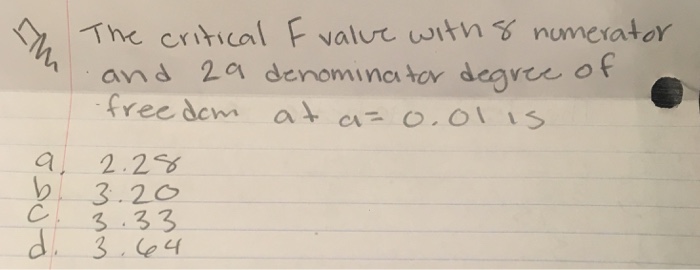 The critical F value with 8 numerator
and 29 denominator degree of
freedom at a = 0.01 is
a. 2.28
b. 3.20
c. 3.33
d. 3.64